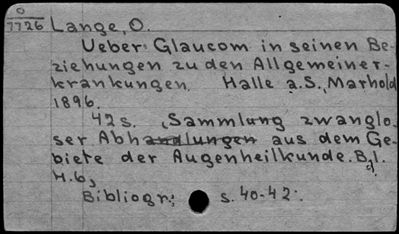 O
7726
Lange, O.
Ueber Glaucom in seinen Be-
ziehungen zu den Allgemeiner-
krankungen. Halle a.S., Marhold
1896.
42 s. (Sammlung zwanglo-
ser Abhandlungen aus dem Ge-
biete der Augenheilkunde. B.1.
H.6)
Bibliogr.: s. 40-42.